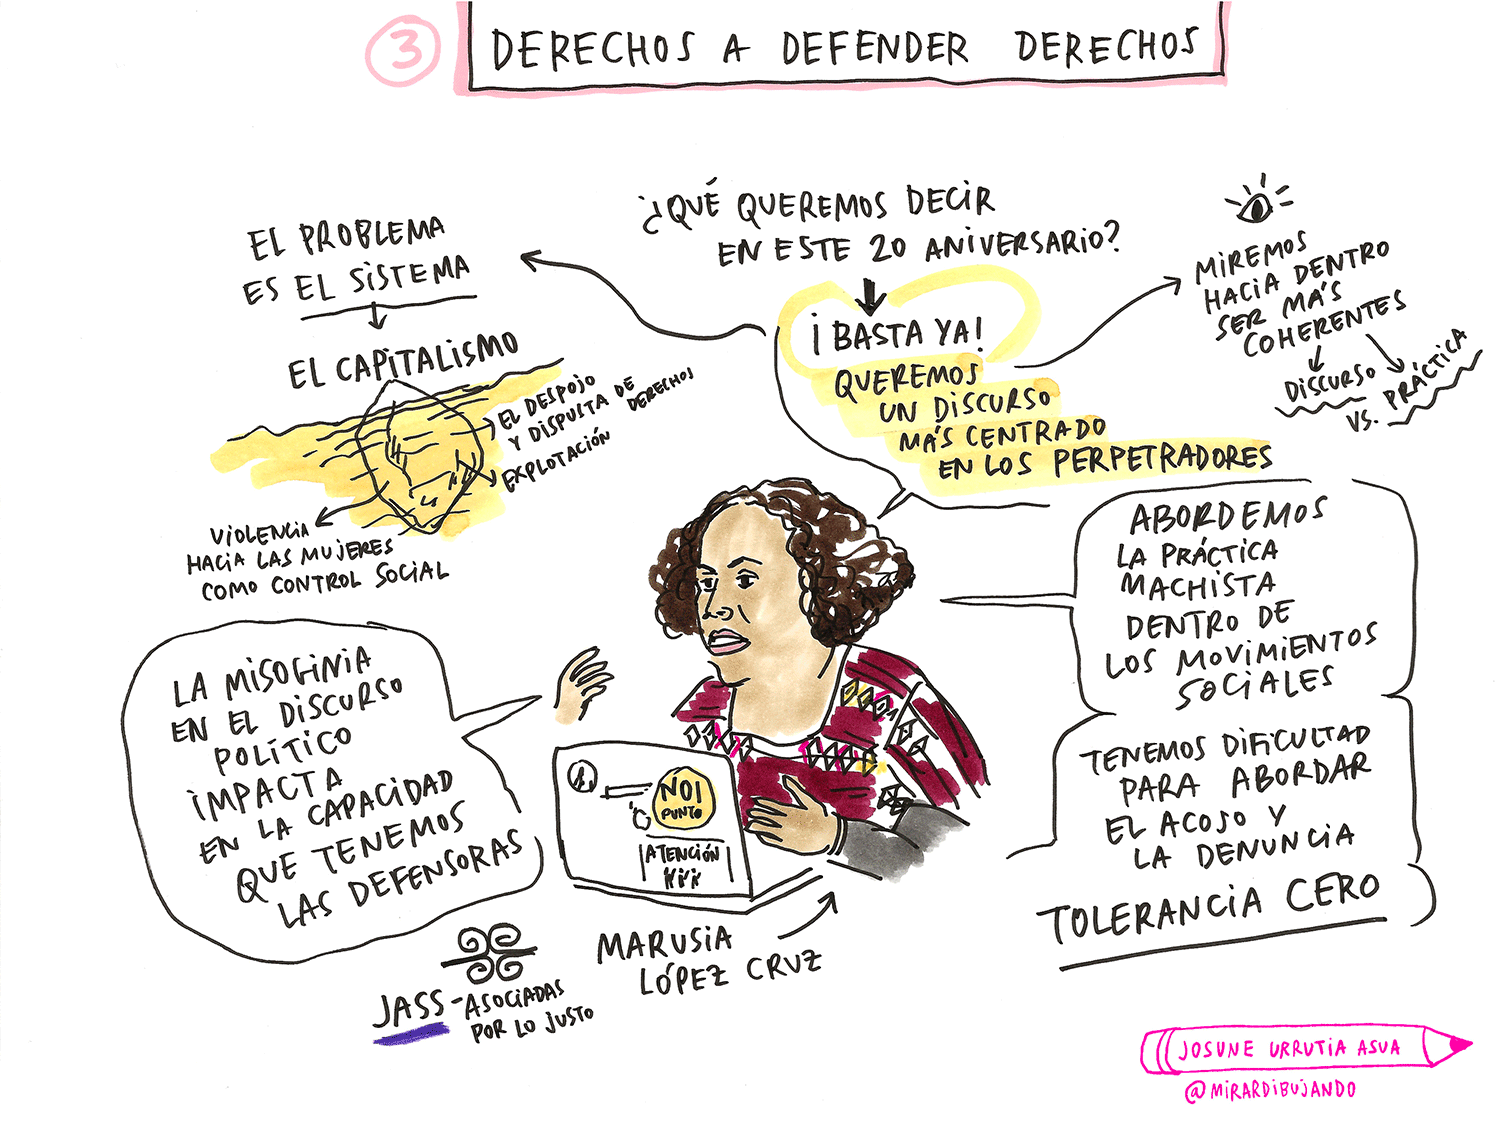 3
DERECHOS A DEFENDER DERECHOS
¿QUÉ QUEREMOS DECIR
EN ESTE 20 ANIVERSARIO?
¡BASTA YA!
QUEREMOS
UN DISCURSO
MÁS CENTRADO
EN LOS PERPETRADORES
EL PROBLEMA
ES EL SISTEMA
EL CAPITALISMO
EL DESPOJO
Y DISPUTA DE
DERECHOS
EXPLOTACIÓN
VIOLENCIA
HACIA LAS MUJERES
COMO CONTROL SOCIAL
MIREMOS
HACIA DENTRO
SER MÁS
COHERENTES
DISCURSO
VS. PRÁCTICA
ABORDEMOS
LA PRÁCTICA
MACHISTA
DENTRO DE
LOS MOVIMIENTOS
SOCIALES
TENEMOS DIFICULTAD
PARA ABORDAR
EL ACOSO Y
LA DENUNCIA
TOLERANCIA CERO
LA MISOGINIA
EN EL DISCURSO
POLÍTICO
IMPACTA
EN LA CAPACIDAD
QUE TENEMOS
LAS DEFENSORAS
NO!
PUNTO
ATENCIÓN
MARUSIA
LÓPEZ CRUZ
JASS - ASOCIADAS
POR LO JUSTO
JOSUNE URRUTIA ASUA
@MIRARDIBUJANDO